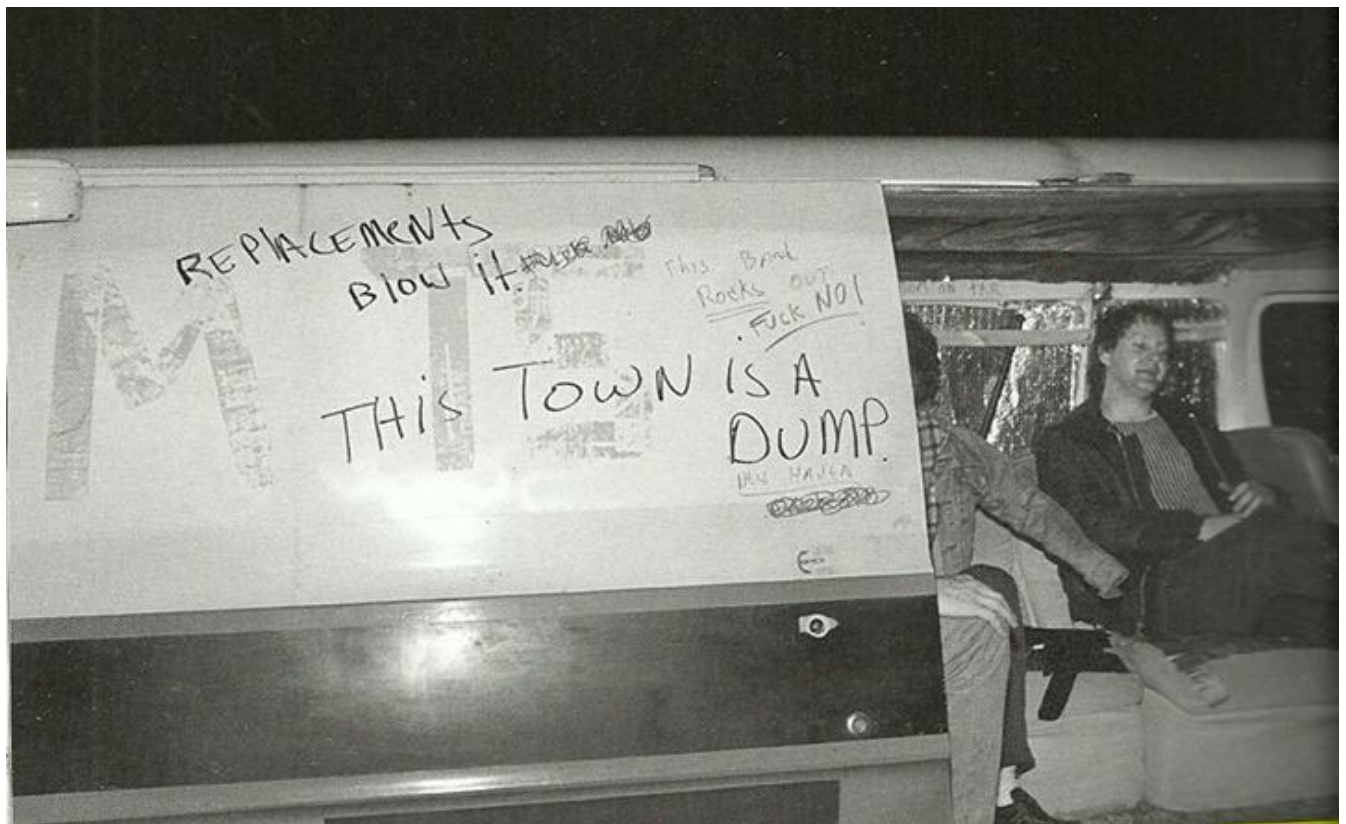 REPLACEMENTS
BLOW it
This Band
Rocks OUT!
Fuck NO!
THiS TOWN iS A
DUMP.